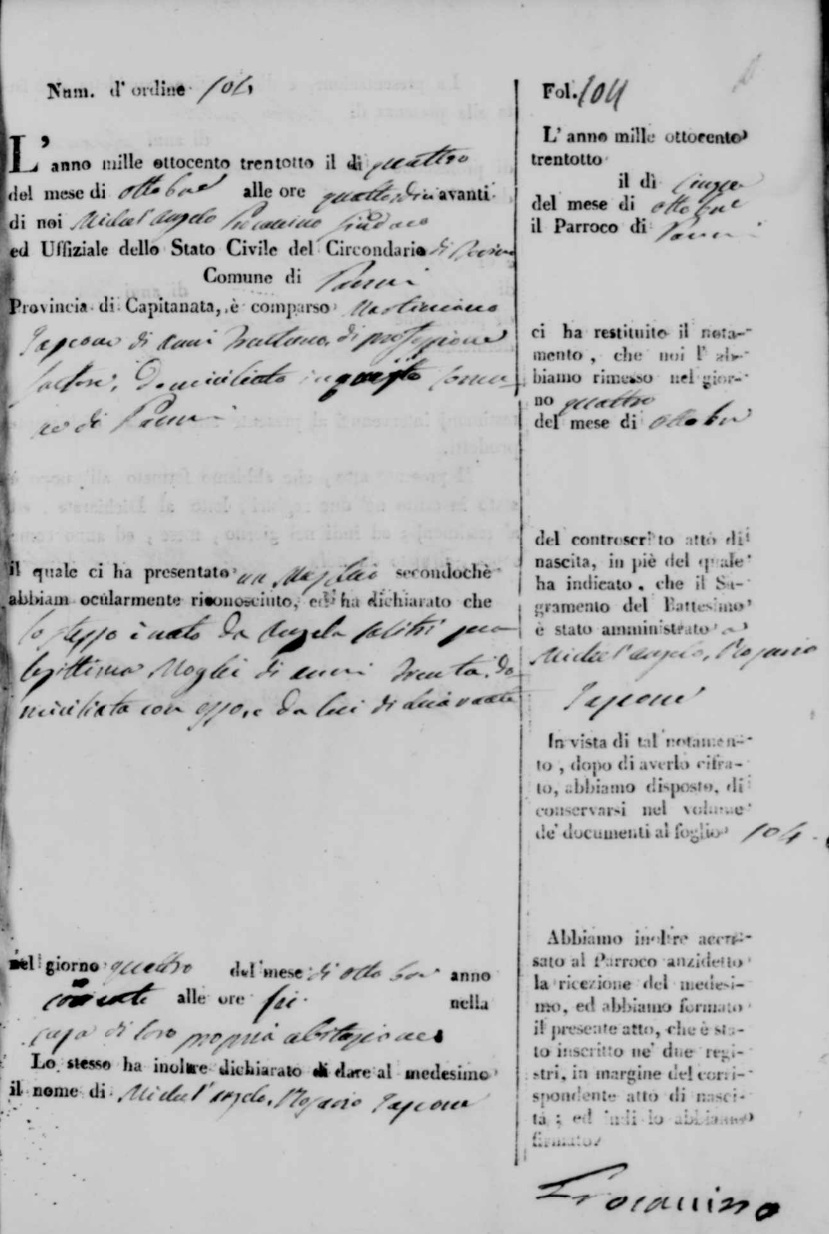 Num. d'ordine 104
L'anno mille ottocento trentotto il di quattro
del mese di ottobre alle ore quattordici avanti
di noi Michel'Angelo Procaccino Sindaco
ed Uffiziale dello Stato Civile del Circondario di
Comune di Panni
Provincia di Capitanata, è comparso
di anni trentuno, di professione
domiciliato in questo Comu-
ne di Panni
il quale ci ha presentato un Maschio secondochè
abbiam ocularmente riconosciuto, ed ha dichiarato che
lo stesso è nato da Angela Salitri sua
legittima Moglie di anni trenta, do
miciliata con esso, e da lui dichiarante
nel giorno quattro del mese di ottobre anno
corrente alle ore sei nella
casa di loro propria abitazione
Lo stesso ha inoltre dichiarato di dare al medesimo
il nome di Michel'Angelo, Rosario
Fol. 104
L'anno mille ottocento
trentotto
il di cinque
del mese di ottobre
il Parroco di Panni
ci ha restituito il nota-
mento, che noi l'ab-
biamo rimesso nel gior-
no quattro
del mese di ottobre
del controscritto atto di
nascita, in piè del quale
ha indicato, che il Sa-
gramento del Battesimo
è stato amministrato a
Michel'Angelo, Rosario
In vista di tal notamen-
to, dopo di averlo cifra-
to, abbiamo disposto, di
conservarsi nel volume
de' documenti al foglio 104.
Abbiamo inoltre accu-
sato al Parroco anzidetto
la ricezione del medesi-
mo, ed abbiamo formato
il presente atto, che è sta-
to inscritto ne' due regi-
stri, in margine del corri-
spondente atto di nasci-
ta; ed indi lo abbiamo
firmato
Procaccino